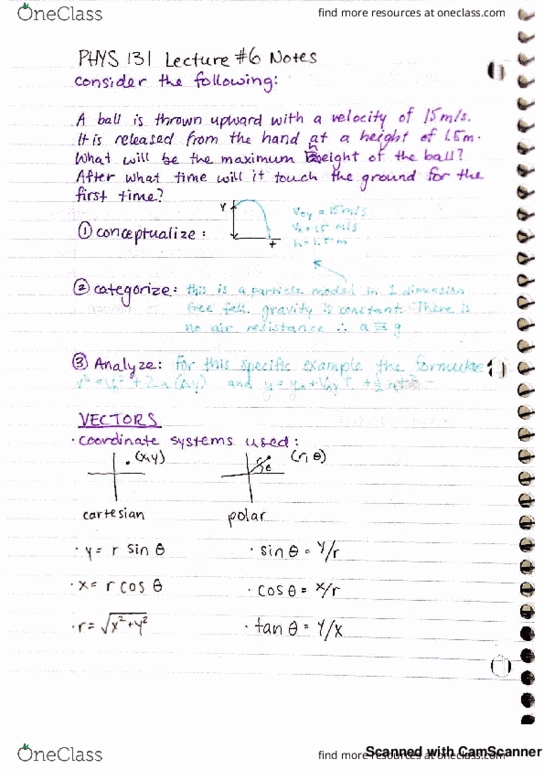 OneClass
find more resources at oneclass.com
PHYS 131 Lecture #6 Notes
consider the following:
A ball is thrown upward with a velocity of 15m/s.
It is released from the hand at a height of 1.5m.
What will be the maximum height of the ball?
After what time will it touch the ground for the
first time?
① conceptualize:
Y
t
Voy = 15m/s
h = 1.5 m
② categorize: this is a particle model in 1 dimension
free fall. gravity is constant. There is
no air resistance ∴ a = g
③ Analyze: For this specific example the formulae
and
VECTORS
· coordinate systems used:
(x,y)
(r, θ)
cartesian
polar
· y = r sin θ
· sin θ = y/r
· x = r cos θ
· cos θ = x/r
· r = √x²+y²
· tan θ = y/x
OneClass
find more resources at oneclass.com
Scanned with CamScanner